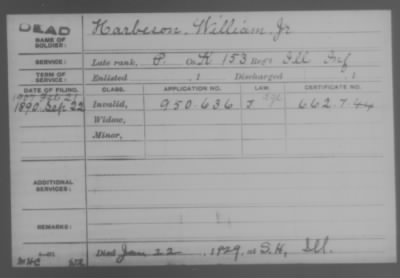 DEAD
NAME OF SOLDIER:
Harbeson, William, Jr
SERVICE:
Late rank, P. Co. K 153 Reg't Ill Inf
TERM OF SERVICE:
Enlisted , 1 Discharged , 1
DATE OF FILING.
CLASS.
APPLICATION NO.
LAW.
CERTIFICATE NO.
1890 Sep. 22
Invalid,
950.636
662744
Widow,
Minor,
ADDITIONAL SERVICES:
REMARKS:
Died Jan 22, 1929, at S.H, Ill.